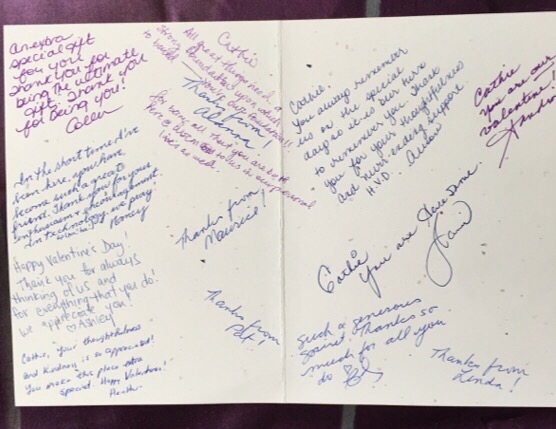 An extra
special gift
for you.
Thank you for
being the ultimate
gift. Thank you
for being you!
In the short time I've
been here, you have
become such a great
friend. Thank you for your
enthusiasm & encouragement.
In technology, we pray!
Nancy
Happy Valentine's Day!
Thank you for always
thinking of us and
for everything that you do!
We appreciate you!
Ashley
Cathie, your thoughtfulness
and kindness is so appreciated!
You make this place extra
special. Happy Valentines!
Heather
Cathie
All great things need a
strong foundation upon which
to build.
You're our foundation!!
Thanks from
For being all that you are both
Here @ work
Thanks from
Maurice!
Thanks from
Pat!
Cathie,
You always remember
us on the special
days so it is our turn
to remember you. Thank
you for your thoughtfulness
and never-ending support
H.V.D.
Cathie
You are our
valentine!
Cathie
You are awesome.
Such a generous
spirit. Thanks so
much for all you
do
Thanks from
Linda!